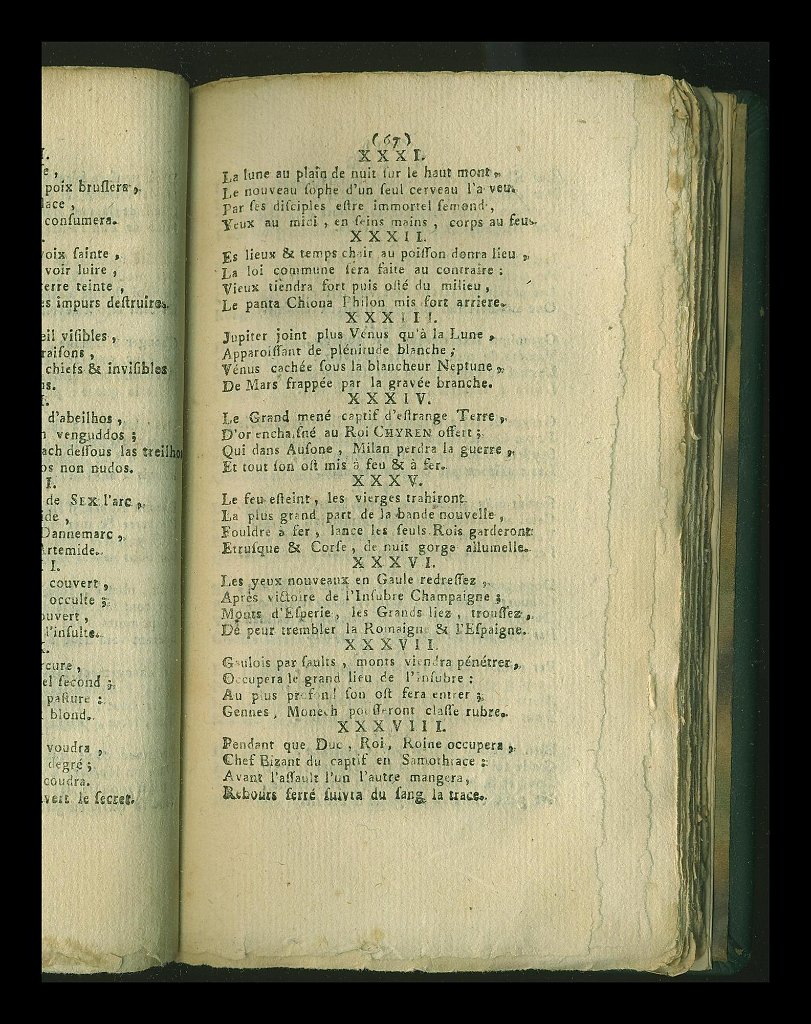 poix bruſlera,
lace,
conſumera.
voix ſainte,
voir luire,
terre teinte,
es impurs deſtruira.
eil viſibles,
raiſons,
chiefs & inviſibles
d'abeilhos,
venguddos;
ach deſſous las treilhos
os non nudos.
I.
de SEX l'arc,
ide,
Dannemarc,
Artemide.
I.
couvert,
occulte;
ouvert,
l'inſulte.
rcure,
el ſecond;
paſture:
blond.
voudra,
dégré;
coudra.
vert le ſecret.
(67)
XXXI.
La lune au plain de nuit ſur le haut mont,
Le nouveau ſophe d'un ſeul cerveau l'a veu.
Par ſes diſciples eſtre immortel ſemond,
Yeux au midi, en ſeins mains, corps au feu.
XXXII.
Es lieux & temps chair au poiſſon donra lieu,
La loi commune ſera faite au contraire:
Vieux tiendra fort puis oſté du milieu,
Le panta Chiona Philon mis fort arriere.
XXXIII.
Jupiter joint plus Vénus qu'à la Lune,
Apparoiſſant de plénitude blanche;
Vénus cachée ſous la blancheur Neptune,
De Mars frappée par la gravée branche.
XXXIV.
Le Grand mené captif d'eſtrange Terre,
D'or enchaiſné au Roi CHYREN offert;
Qui dans Auſone, Milan perdra la guerre,
Et tout ſon oſt mis à feu & à fer.
XXXV.
Le feu eſteint, les vierges trahiront
La plus grand part de la bande nouvelle,
Fouldre à fer, lance les ſeuls Rois garderont:
Etruſque & Corſe, de nuit gorge allumelle.
XXXVI.
Les yeux nouveaux en Gaule redreſſez,
Après victoire de l'Inſubre Champaigne;
Monts d'Eſperie, les Grands liez, trouſſez,
De peur trembler la Romaigne & l'Eſpaigne.
XXXVII.
Gaulois par ſaults, monts viendra pénétrer,
Occupera le grand lieu de l'inſubre:
Au plus profond ſon oſt fera entrer;
Gennes, Monech pouſſeront claſſe rubre.
XXXVIII.
Pendant que Duc, Roi, Roine occupera,
Chef Bizant du captif en Samothrace:
Avant l'aſſault l'un l'autre mangera,
Rebours ferré ſuivra du ſang la trace.